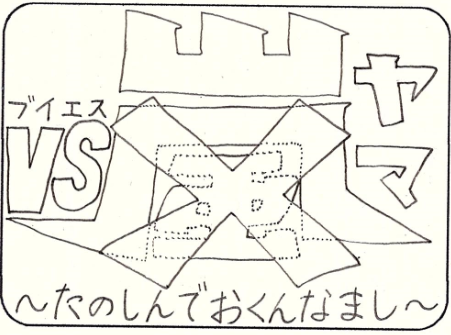 ブイエス
VS
ヤマ
～たのしんでおくんなまし～